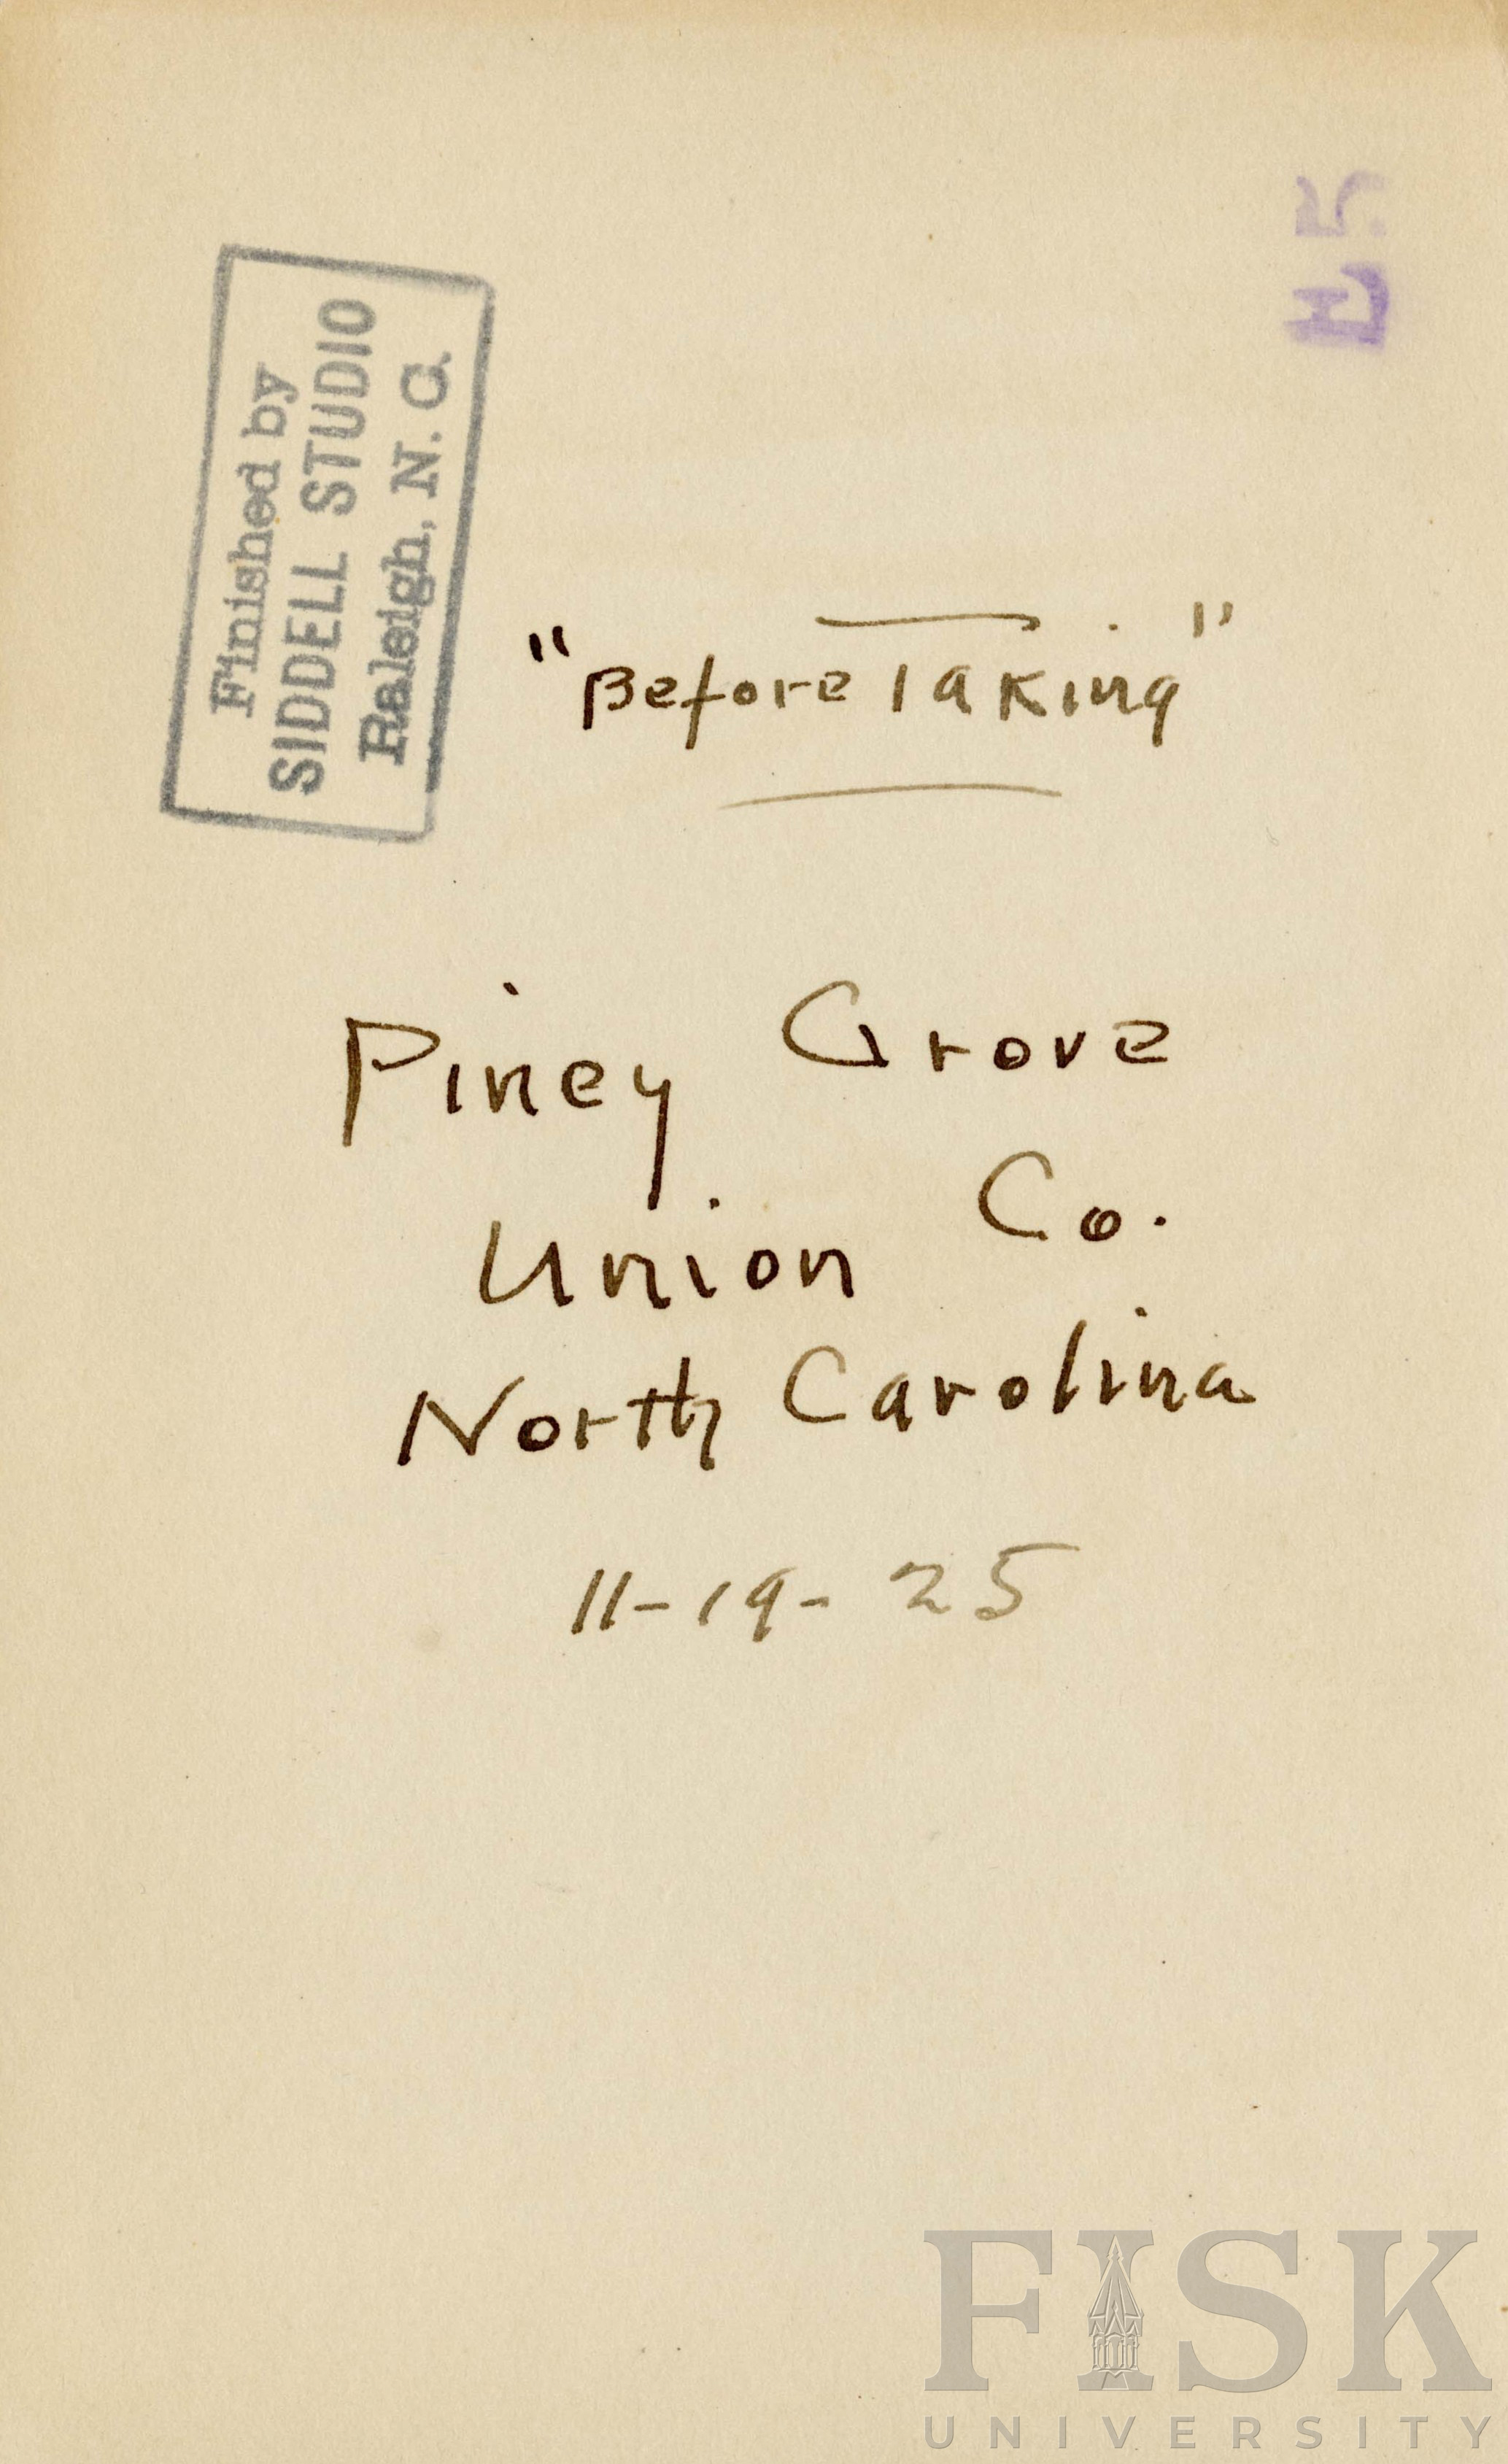 Finished by
SIDDELL STUDIO
Raleigh, N. C.
"Before Taking"
Piney Grove
Union Co.
North Carolina
11-19-25
FISK
UNIVERSITY